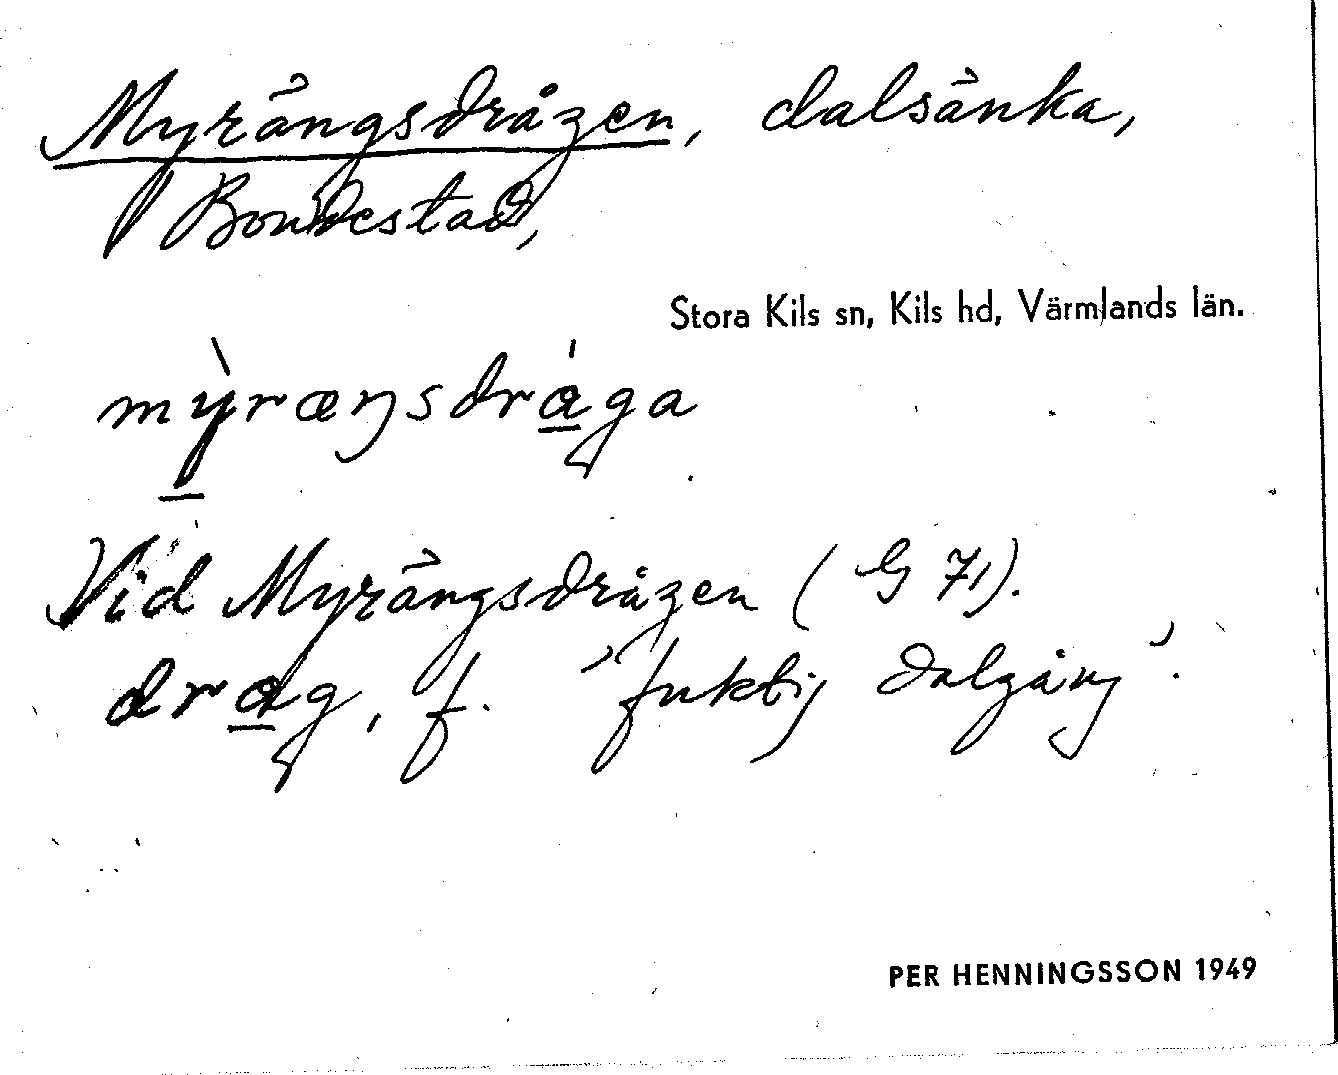 Myrängsdrågen, dalsänka,
Bondestad,
Stora Kils sn, Kils hd, Värmlands län.
mỳræŋsdrága
Vid Myrängsdrågen (G 71).
drag, f. 'fuktig dalgång'.
PER HENNINGSSON 1949